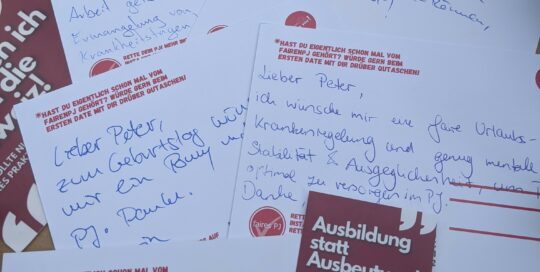 Arbeit
Krankheitstagen
können,
RETTE DEIN PJ! MEHR
ich
die
*HAST DU EIGENTLICH SCHON MAL VOM
FAIRENPJ GEHÖRT? WÜRDE GERN BEIM
ERSTEN DATE MIT DIR DRÜBER QUTASCHEN!
Lieber Peter,
zum Geburtstag
mir ein Pony
PJ. Danke.
*HAST DU EIGENTLICH SCHON MAL VOM
FAIRENPJ GEHÖRT? WÜRDE GERN BEIM
ERSTEN DATE MIT DIR DRÜBER QUTASCHEN!
Lieber Peter,
ich wünsche mir eine faire Urlaubs-
Krankenregelung und genug mentale
Stabilität & Ausgeglichenheit, um
optimal zu versorgen im PJ.
Danke
faires PJ
RETT
INST
Ausbildung
statt
Ausbeutung
*HAST DU EIGENTLICH SCHON MAL VOM